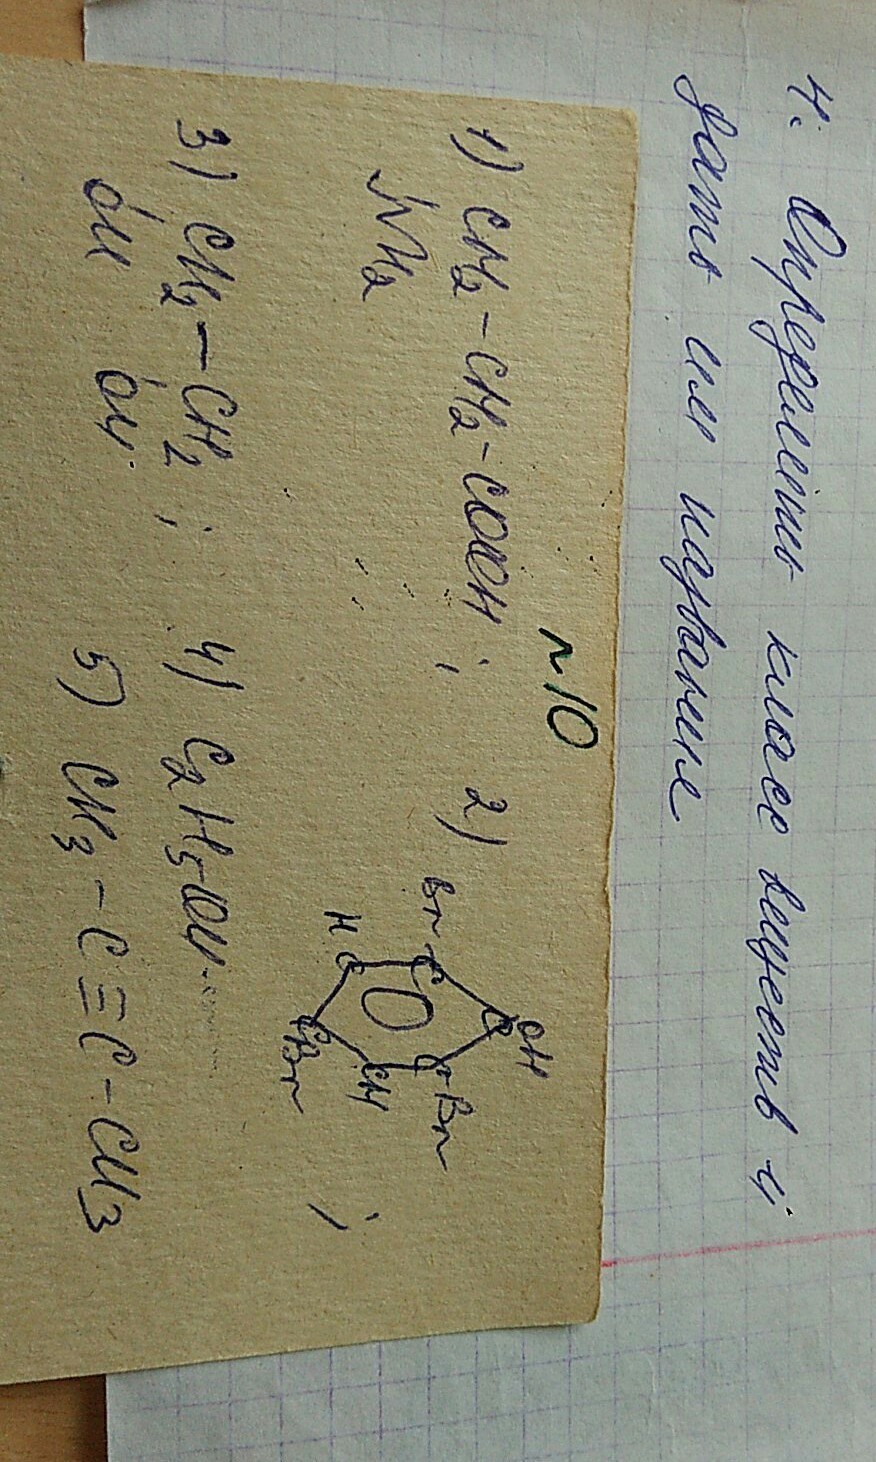 4. Определить класс веществ и
дать им название
№10
1) CH2-CH2-COOH;
NH2
2)
OH
C
Br C
C-Br
HC
CH
CBr
;
3) CH2-CH2;
OH OH
4) C2H5OH
5) CH3-C≡C-CH3